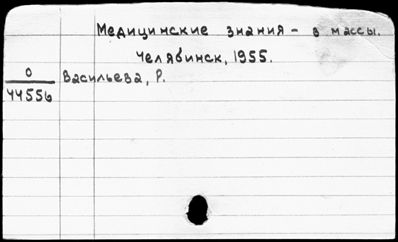 Медицинские знания – в массы.
Челябинск, 1955.
О
Васильева, Р.
44556